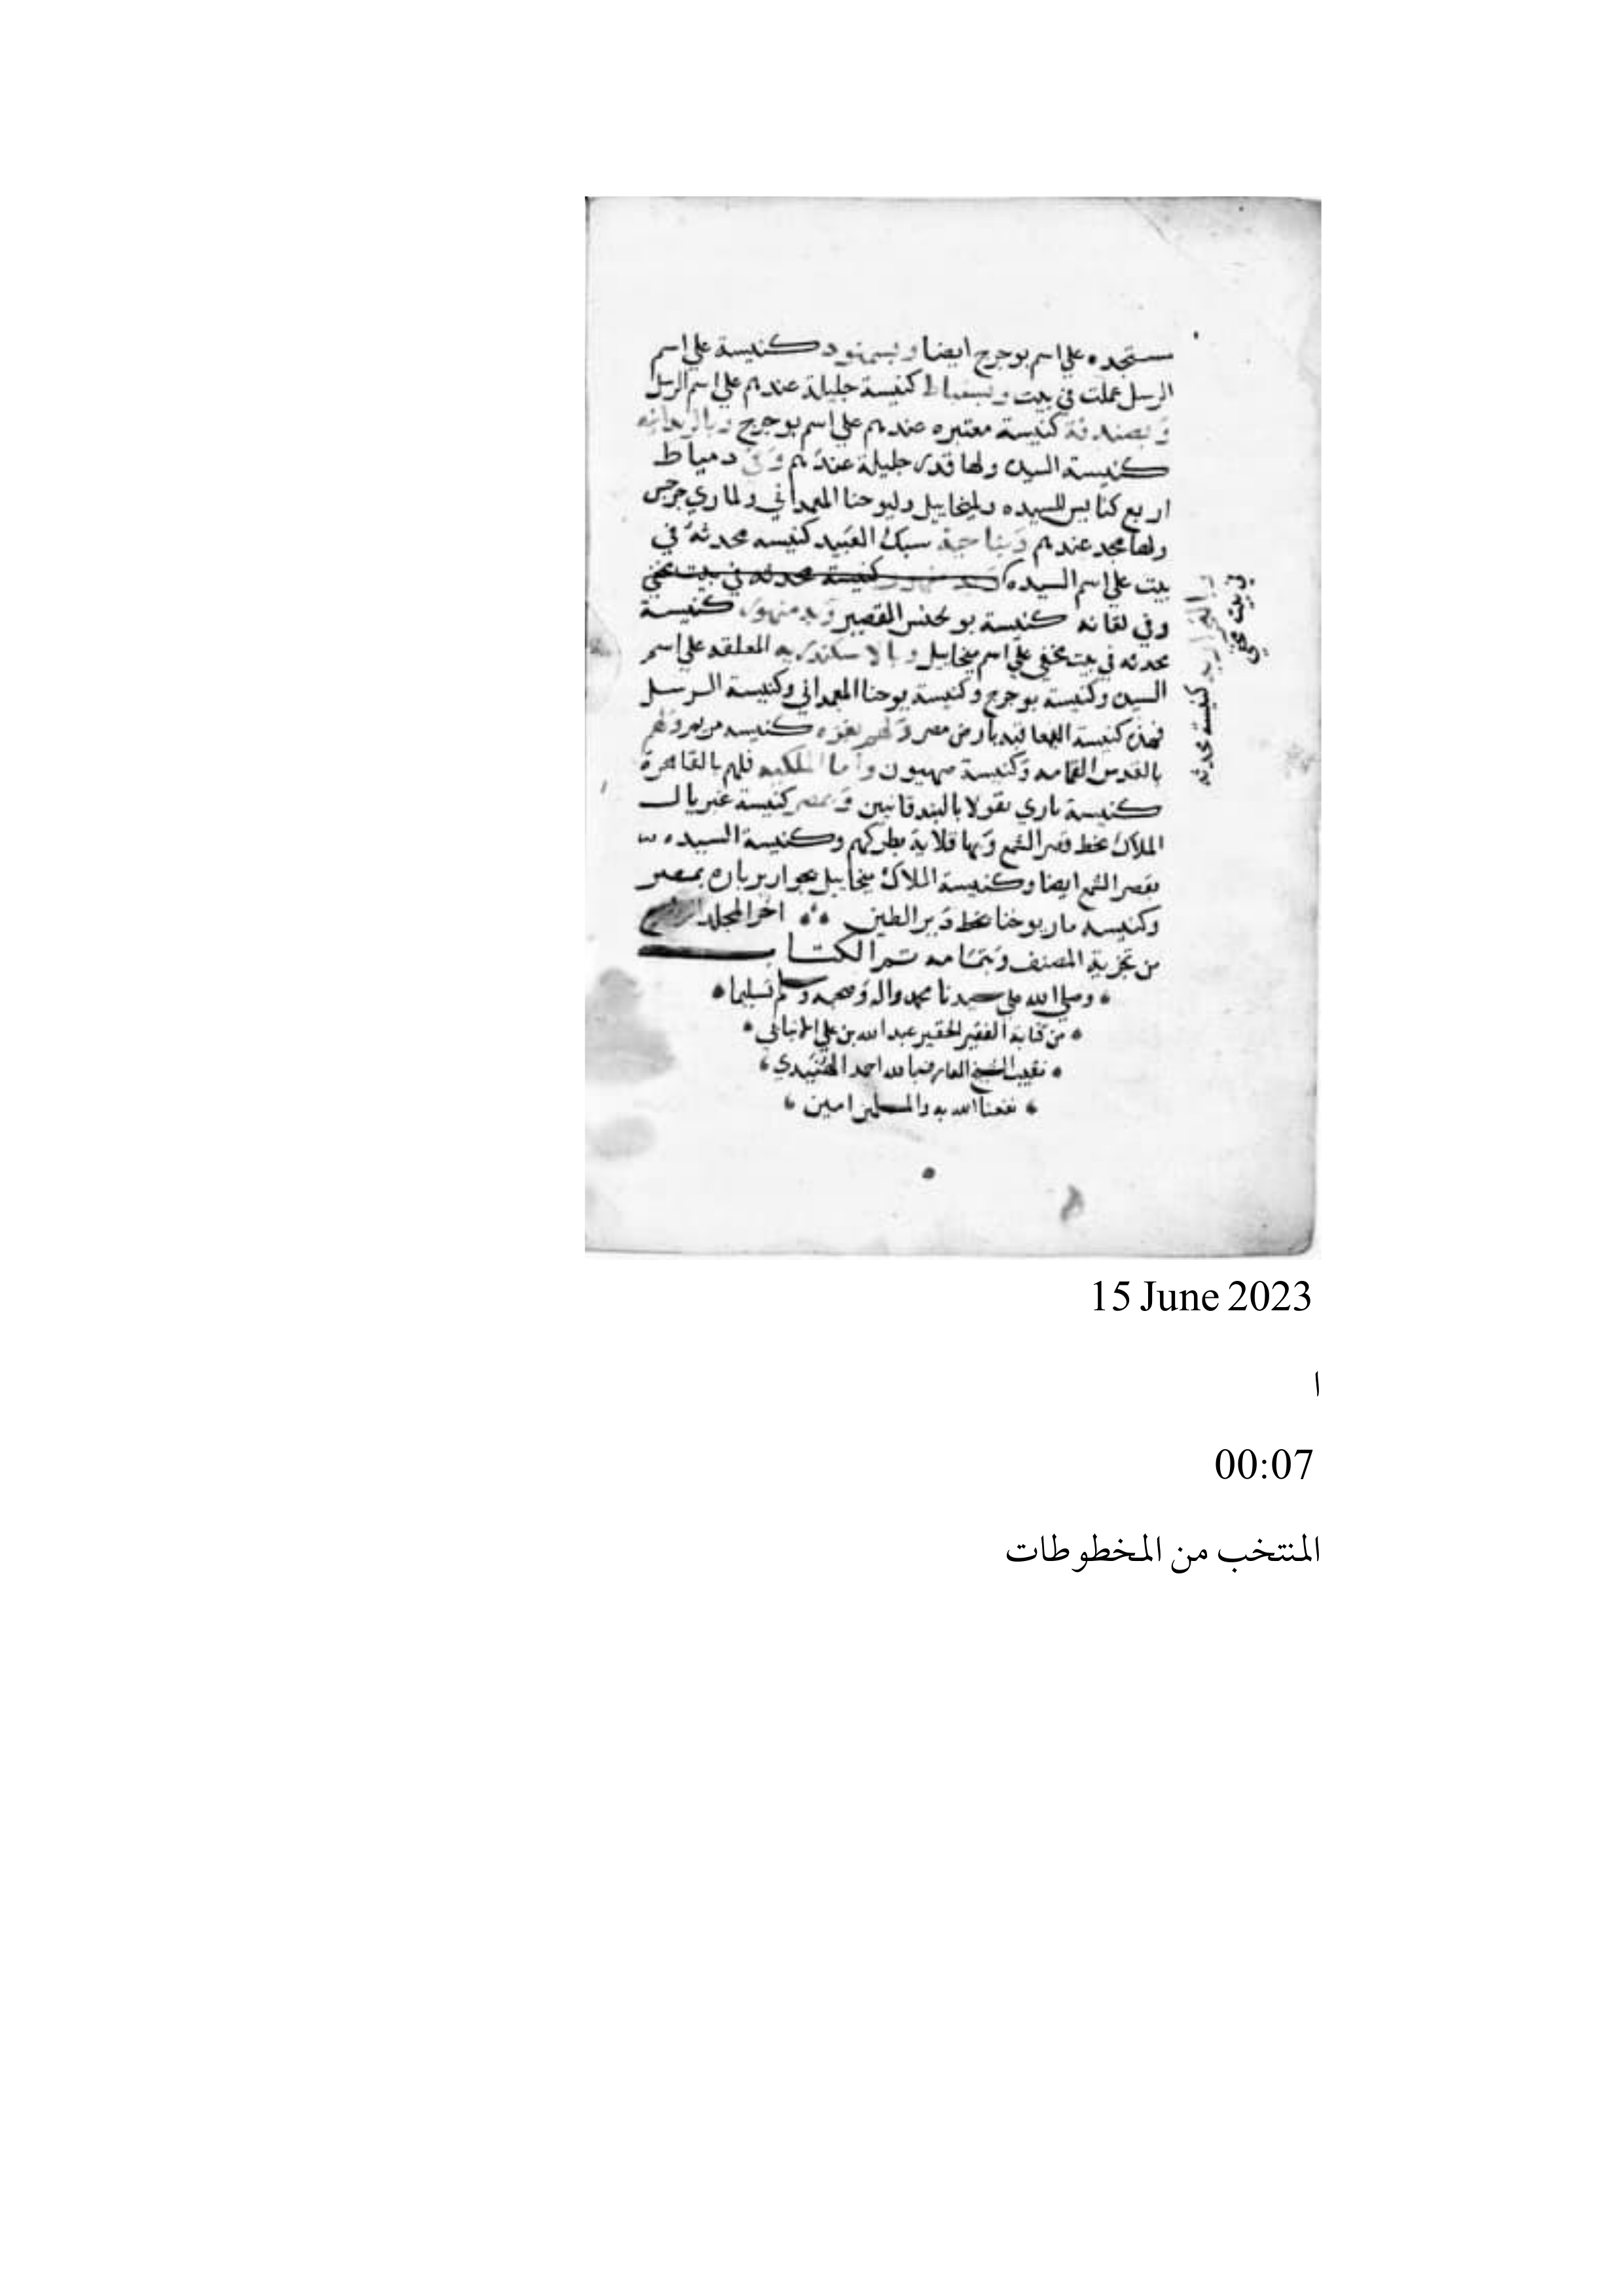 مستجده علي اسم بوجرج ايضا وبسمنود كنيسة علي اسم
الرسل عملت في بيت وبسنباط كنيسة جليلة عندهم علي اسم الرسل
وبصندفة كنيسة معتبره عندهم علي اسم بوجرج وبالريدانيه
كنيسة السيده ولها قدر جليلة عندهم وفي دمياط
اربع كنايس للسيده ولميخاييل وليوحنا المعمداني ولماري جرجس
ولها مجد عندهم وبناحية سبك العبيد كنيسه محدثة في
بيت علي اسم السيده كنيسة محدثه في بيت مخفي
وفي لقانه كنيسة بو يحنس القصير وبدمنهور كنيسة
محدثه في بيت مخفي علي اسم ميخاييل وبالاسكندريه المعلقه علي اسم
السيده وكنيسة بوجرج وكنيسة يوحنا المعمداني وكنيسة الرسل
فهذه كنيسة اليعاقبه بارض مصر ولهم بغزه كنيسه مريم ولهم
بالقدس القمامه وكنيسة صهيون واما الملكيه فلهم بالقاهرة
كنيسة ماري نقولا بالبندقانيين وبمصر كنيسة غبريال
الملاك بخط قصر الشمع وبها قلاية بطركهم وكنيسة السيده
بقصر الشمع ايضا وكنيسة الملاك ميخاييل بجوار بربارة بمصر
وكنيسه مار يوحنا بخط دير الطين اخر المجلد
من تجزية المصنف وبتمامه تم الكتاب
وصلي الله علي سيدنا محمد واله وصحبه وسلم تسليما
من كتابة الفقير الحقير عبد الله بن علي
نقيب الشيخ العارف بالله احمد
نفعنا الله به والمسلمين امين
كنيسة محدثه
في بيت مخفي
15 June 2023
ا
00:07
المنتخب من المخطوطات